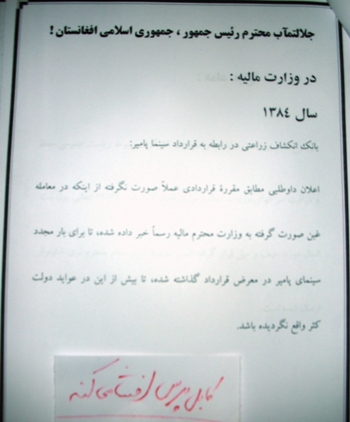 جلالتمآب محترم رئیس جمهور ، جمهوری اسلامی افغانستان !
در وزارت مالیه :
سال ۱۳۸٤
بانک انکشاف زراعتی در رابطه به قرارداد سینما پامیر:
اعلان داوطلبی مطابق مقررهٔ قراردادی عملاً صورت نگرفته از اینکه در معامله
غبن صورت گرفته به وزارت محترم مالیه رسماً خبر داده شده، تا برای بار مجدد
سینمای پامیر در معرض قرارداد گذاشته شده، تا بیش از این در عواید دولت
کثر واقع نگردیده باشد.
کابل پرس افشا می کنه